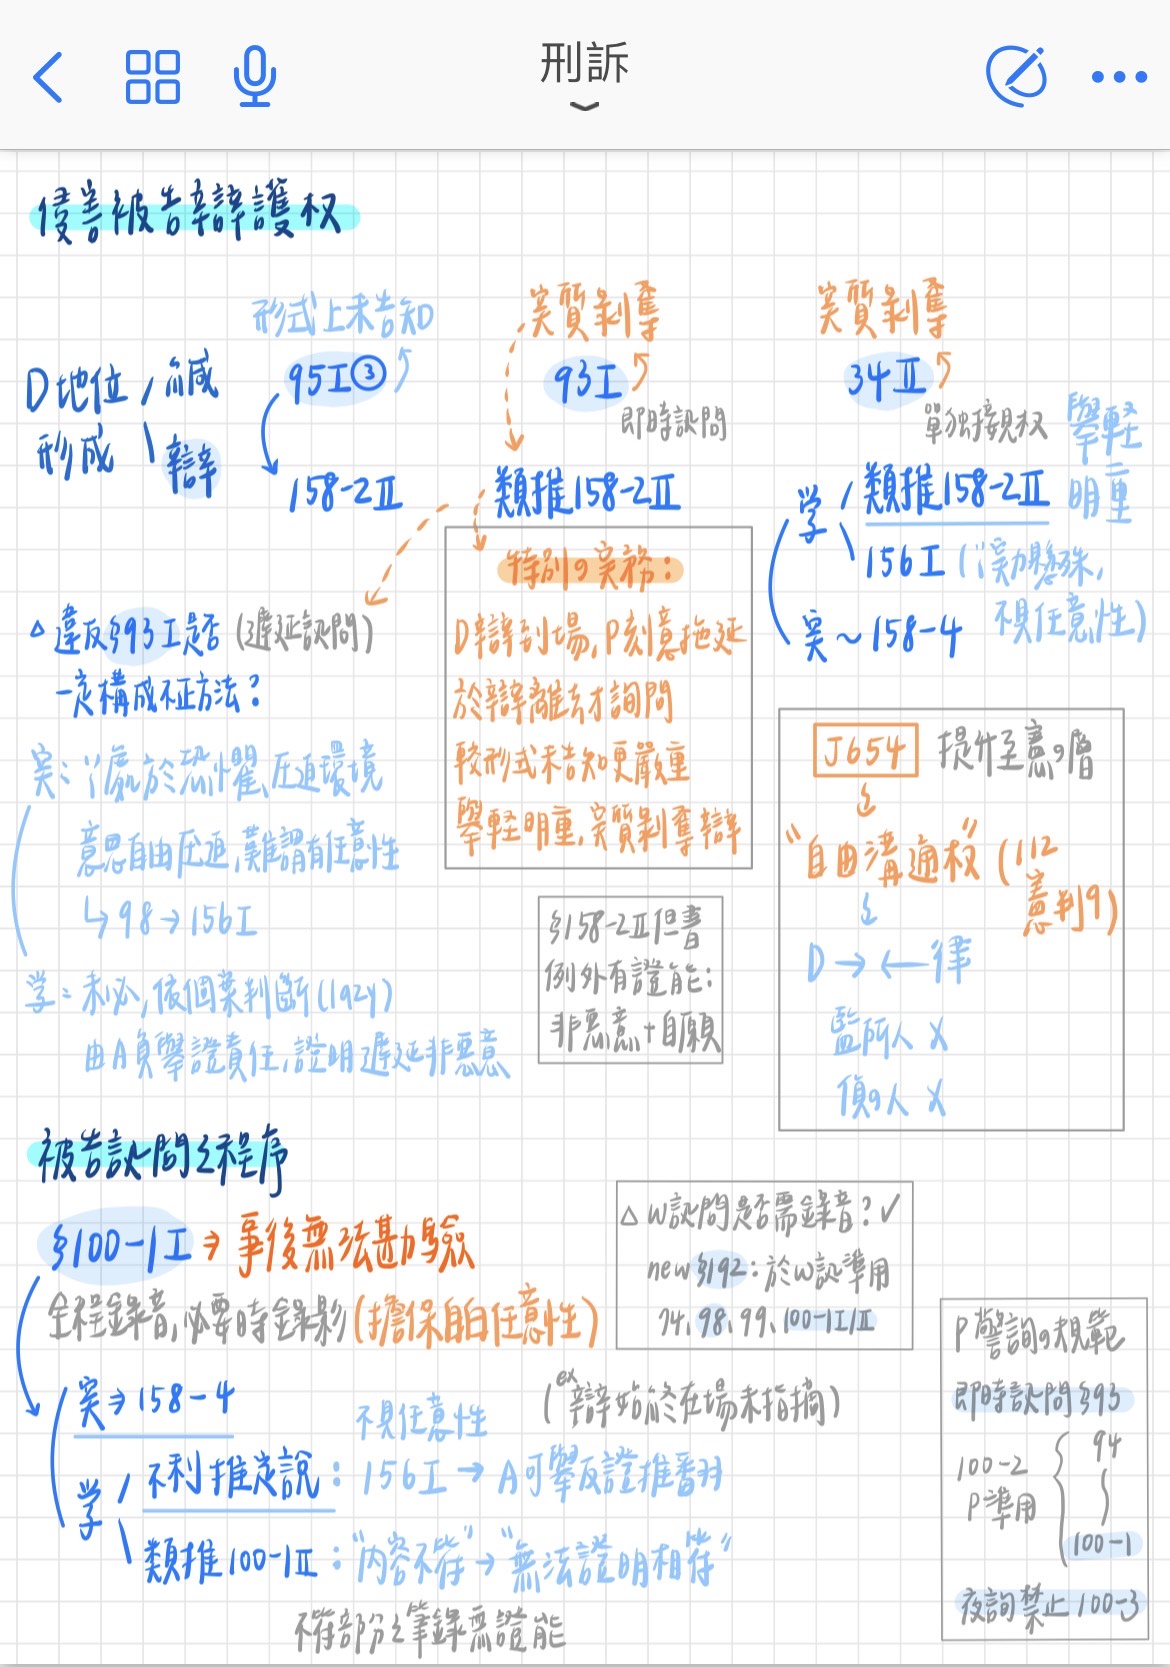 刑訴
侵害被告辯護权
形式上未告知D
实質剝奪
实質剝奪
D地位
形成
緘
辯
95I③
93I
34II
即時訊問
單独接見权
舉軽
明重
158-2II
類推158-2II
学
類推158-2II
156I(∵実力懸殊,
不具任意性)
实~158-4
△違反§93I是否(遲延訊問)
一定構成不正方法?
实:∵處於恐懼、压迫環境
意思自由压迫,難謂有任意性
↳98→156I
学:未必,依個案判斷(lazy)
由A負舉證責任,證明遲延非惡意
特別の実務:
D辯到場,P刻意拖延
於辯離去才詢問
較形式未告知更嚴重
舉軽明重,实質剝奪辯
§158-2II但書
例外有證能:
非惡意+自願
J654 提升至憲の層
"自由溝通权"(112
憲判9)
D→←律
監所人 X
偵の人 X
被告訊問之程序
§100-1I→事後無法勘驗
全程錄音,必要時錄影(擔保自白任意性)
实→158-4
学
不利推定說:
不具任意性
156I→A可舉反證推翻
(ex辯始終在場未指摘)
類推100-1II:"內容不符"→"無法證明相符"
不符部分之筆錄無證能
△W訊問是否需錄音?✓
new §192:於W訊準用
74、98、99、100-1I/II
P警詢の規範
即時訊問§93
100-2
P準用
94
100-1
夜詢禁止100-3